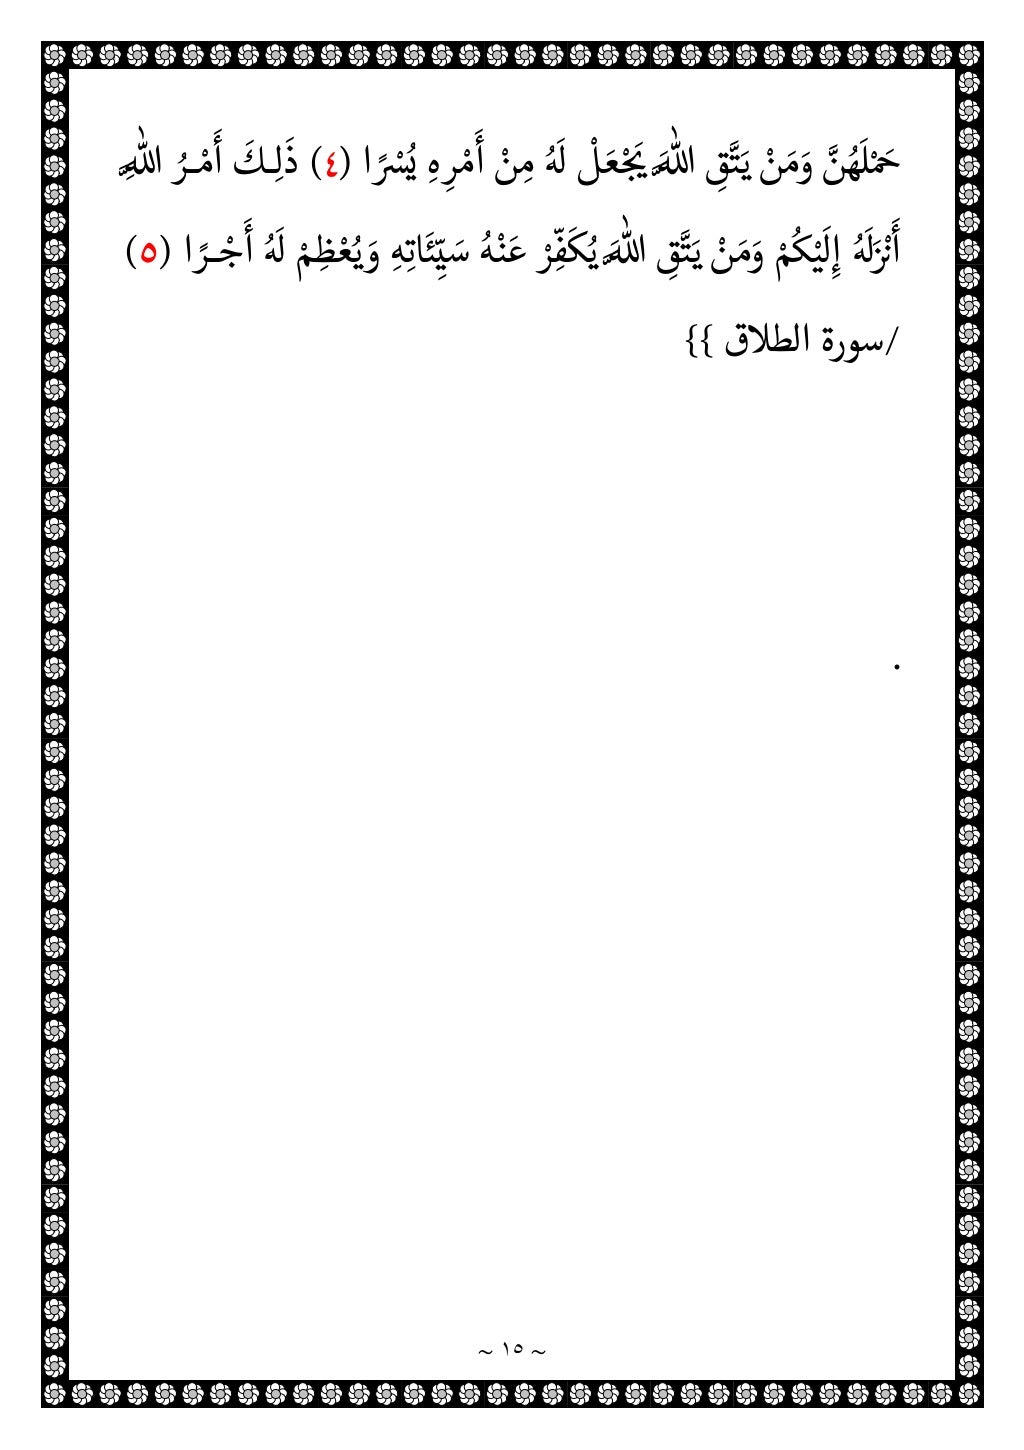 حَمْلَهُنَّ وَمَنْ يَتَّقِ اللَّهَ يَجْعَلْ لَهُ مِنْ أَمْرِهِ يُسْرًا (٤) ذَلِـكَ أَمْـرُ اللَّهِ
أَنْزَلَهُ إِلَيْكُمْ وَمَنْ يَتَّقِ اللَّهَ يُكَفِّرْ عَنْهُ سَيِّئَاتِهِ وَيُعْظِمْ لَهُ أَجْـرًا (٥)
/سورة الطلاق }}
.
~ ١٥ ~